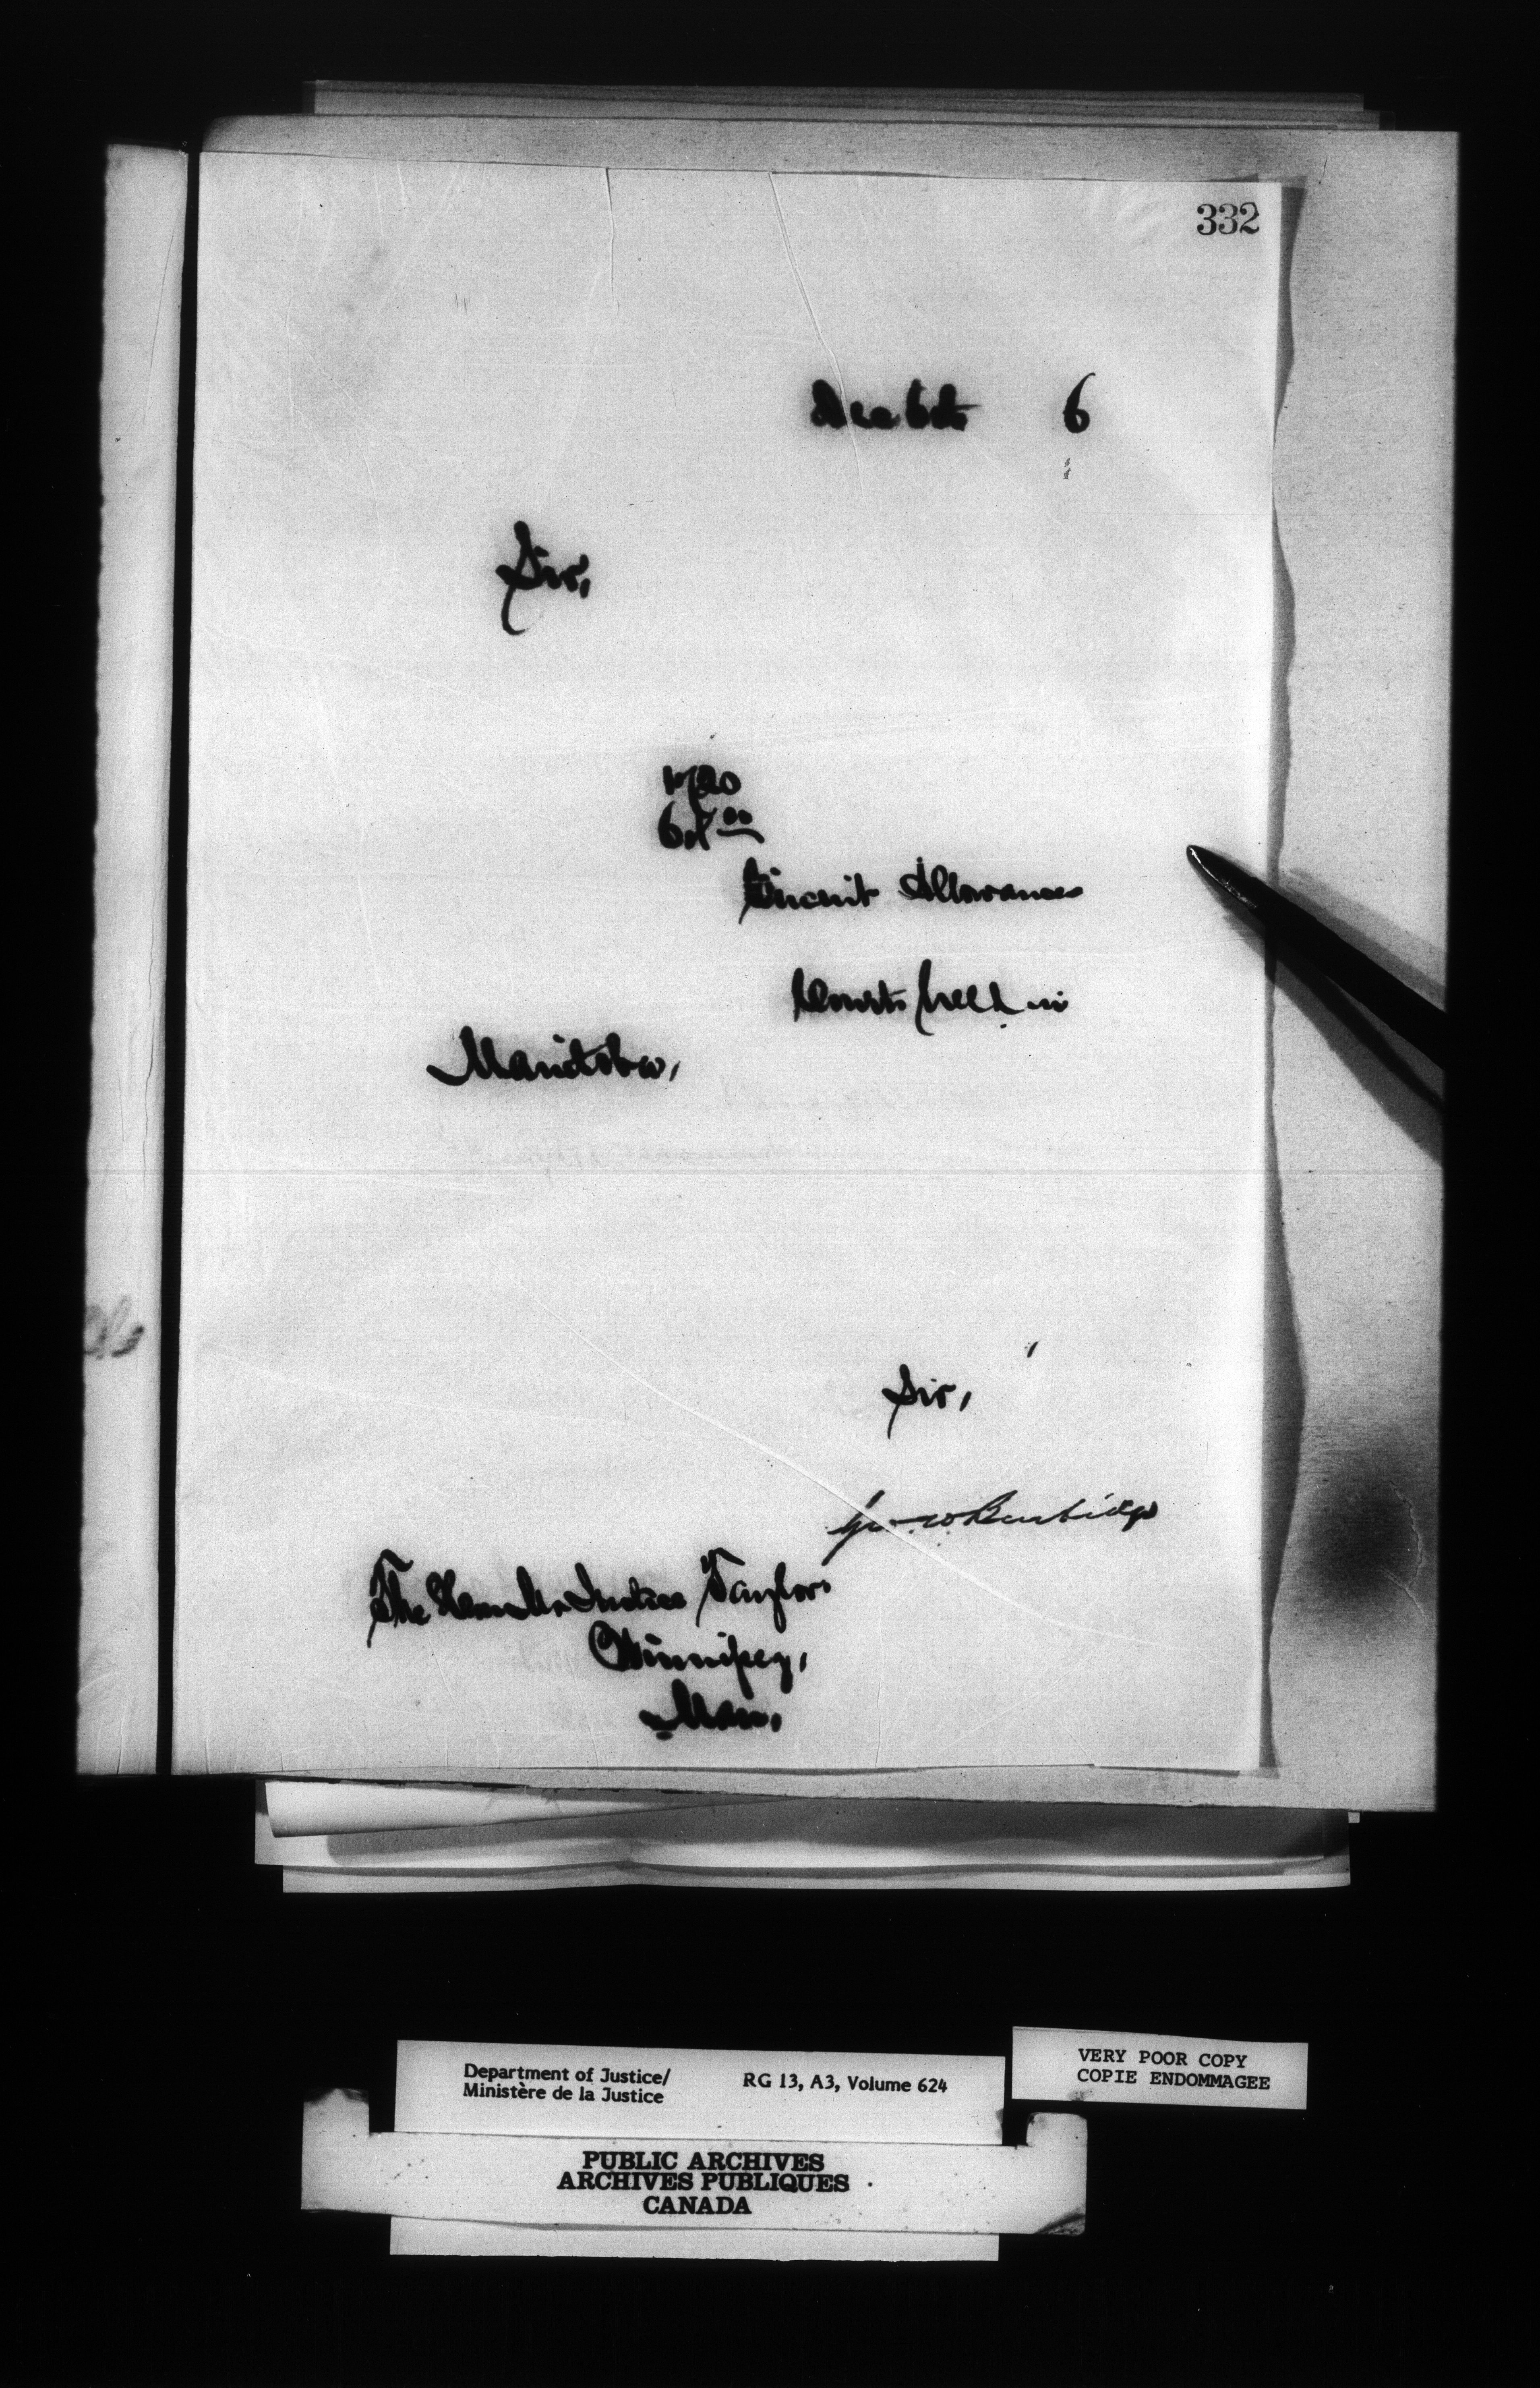 332
Dec 6th 6
Sir,
Circuit Allowances
Courts held in
Manitoba,
Sir,
Geo W Burbidge
The Hon Mr Justice Taylor
Winnipeg,
Man,
Department of Justice/
Ministère de la Justice
RG 13, A3, Volume 624
VERY POOR COPY
COPIE ENDOMMAGEE
PUBLIC ARCHIVES
ARCHIVES PUBLIQUES
CANADA